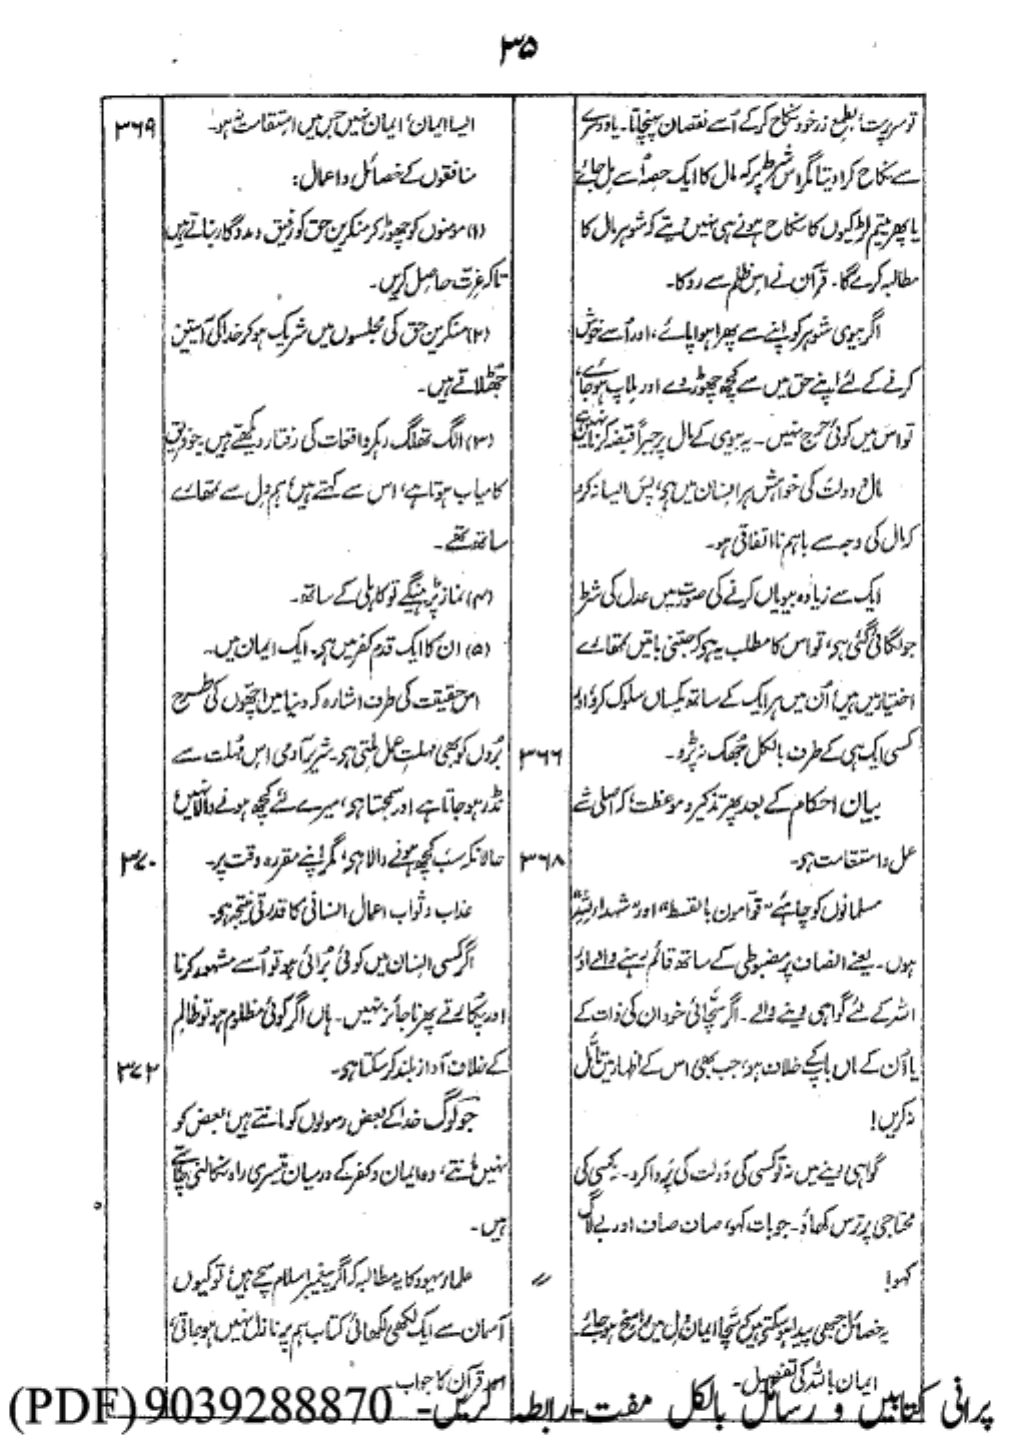 ۳۵
تو سرپرست بطمع زر خود نکاح کرکے اُسے نقصان پہنچاتا۔ یا دوسرے
سے نکاح کرا دیتا مگر اس شرط پر کہ مال کا ایک حصہ اُسے مل جائے
یا پھر یتیم لڑکیوں کا نکاح ہونے ہی نہیں دیتے کہ شوہر مال کا
مطالبہ کرے گا۔ قرآن نے اس ظلم سے روکا۔
اگر بیوی شوہر کو اپنے سے پھرا ہوا پائے، اور اُسے خوش
کرنے کے لئے اپنے حق میں سے کچھ چھوڑ دے اور ملاپ ہو جائے،
تو اس میں کوئی حرج نہیں۔ یہ بیوی کے مال پر جبراً قبضہ کرنا نہیں ہے
مال و دولت کی خواہش ہر انسان میں ہی، پس ایسا نہ کرو
کہ مال کی وجہ سے باہم نا اتفاقی ہو۔
ایک سے زیادہ بیویاں کرنے کی صورت میں عدل کی شرط
جو لگائی گئی ہی، تو اس کا مطلب یہ ہی کہ جتنی باتیں تمھارے
اختیار میں ہیں، اُن میں ہر ایک کے ساتھ یکساں سلوک کرو، اور
کسی ایک ہی کے طرف بالکل جھک نہ پڑو۔ ۳۶۶
بیان احکام کے بعد پھر تذکیر و موعظت، کہ اصلی شے
عمل و استقامت ہی۔ ۳۶۸
مسلمانوں کو چاہئے "قوّامون بالقسط" اور "شہداء للہ"
ہوں۔ یعنے انصاف پر مضبوطی کے ساتھ قائم رہنے والے اور
اللہ کے لئے گواہی دینے والے۔ اگر سچائی خود ان کی ذات کے
یا اُن کے ماں باپ کے خلاف ہو، جب بھی اس کے اظہار میں تامّل
نہ کریں!
گواہی دینے میں نہ تو کسی کی دولت کی پروا کرو۔ نہ کسی کی
محتاجی پر ترس کھاؤ۔ جو بات کہو، صاف صاف اور بے لاگ
کہو! //
یہ خصائل جبھی پیدا ہو سکتی ہیں کہ سچا ایمان دل میں راسخ ہو جائے۔
ایمان باللہ کی تفصیل۔
ایسا ایمان، ایمان نہیں جس میں استقامت نہ ہو۔ ۳۶۹
منافقوں کے خصائل و اعمال:
(۱) مومنوں کو چھوڑ کر منکرین حق کو رفیق و مددگار بناتے ہیں
تاکہ عزت حاصل کریں۔
(۲) منکرین حق کی مجلسوں میں شریک ہو کر خدا کی آیتیں
جھٹلاتے ہیں۔
(۳) الگ تھلگ رہکر واقعات کی رفتار دیکھتے ہیں۔ جو فریق
کامیاب ہوتا ہے، اس سے کہتے ہیں، ہم دل سے تمھارے
ساتھ تھے۔
(۴) نماز پڑھینگے تو کاہلی کے ساتھ۔
(۵) ان کا ایک قدم کفر میں ہی۔ ایک ایمان میں۔
اس حقیقت کی طرف اشارہ کہ دنیا میں اچھوں کی طرح
بُروں کو بھی مہلت عمل ملتی ہی۔ شریر آدمی اس مہلت سے
نڈر ہو جاتا ہے اور سمجھتا ہی، میرے لئے کچھ ہونے والا نہیں،
حالانکہ سب کچھ ہونے والا ہی، مگر اپنے مقررہ وقت پر۔ ۳۷۰
عذاب و ثواب اعمال انسانی کا قدرتی نتیجہ ہی۔
اگر کسی انسان میں کوئی بُرائی ہو تو اُسے مشہور کرنا
اور پکارتے پھرنا جائز نہیں۔ ہاں اگر کوئی مظلوم ہو تو ظالم
کے خلاف آواز بلند کر سکتا ہی۔ ۳۷۲
جو لوگ خدا کے بعض رسولوں کو مانتے ہیں، بعض کو
نہیں مانتے، وہ ایمان و کفر کے درمیان تیسری راہ نکالنی چاہتے
ہیں۔
علماء یہود کا یہ مطالبہ کہ اگر پیغمبر اسلام سچے ہیں، تو کیوں
آسمان سے ایک لکھی لکھائی کتاب ہم پر نازل نہیں ہو جاتی،
اور قرآن کا جواب۔
پرانی کتابیں و رسائل بالکل مفت۔رابطہ کریں۔ 9039288870(PDF)